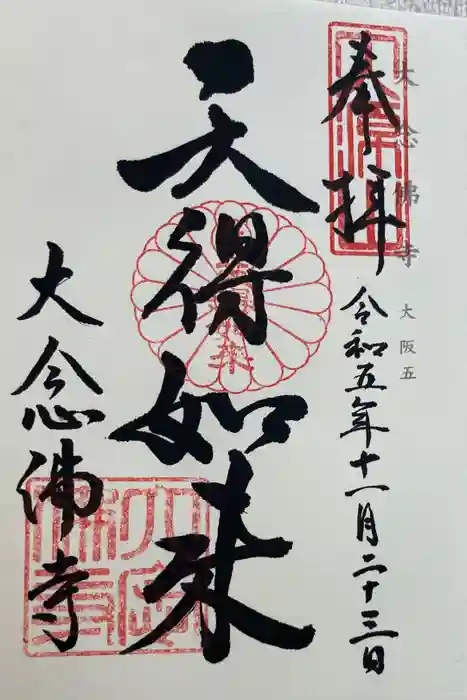 奉拝
大念佛寺 大阪五
令和五年十一月二十三日
天得如来
大念佛寺